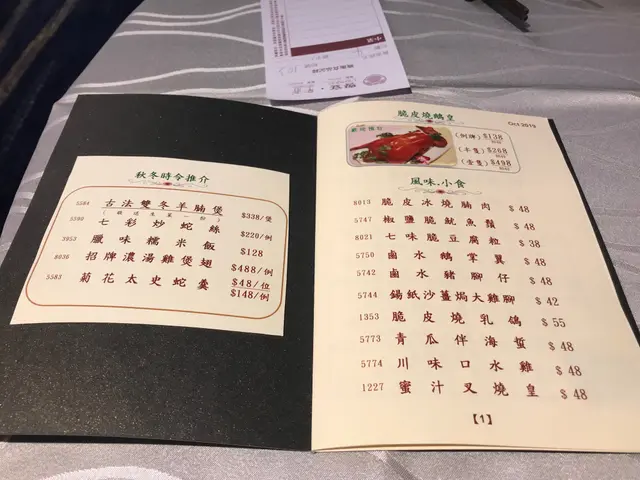 秋冬時令推介
5584 古法雙冬羊腩煲 $338/煲
5590 七彩炒蛇絲 $220/例
3953 臘味糯米飯 $128
8036 招牌濃湯雞煲翅 $488/例
5583 菊花太史蛇羹 $48/位
$148/例
脆皮燒鵝皇
Oct 2019
(例牌) $138
(半隻) $268
(壹隻) $498
風味.小食
8013 脆皮冰燒腩肉 $48
5747 椒鹽脆魷魚鬚 $48
8021 七味脆豆腐粒 $38
5750 鹵水鵝掌翼 $48
5742 鹵水豬腳仔 $48
5744 錫紙沙薑焗大雞腳 $42
1353 脆皮燒乳鴿 $55
5773 青瓜伴海蜇 $48
5774 川味口水雞 $48
1227 蜜汁叉燒皇 $48
【1】